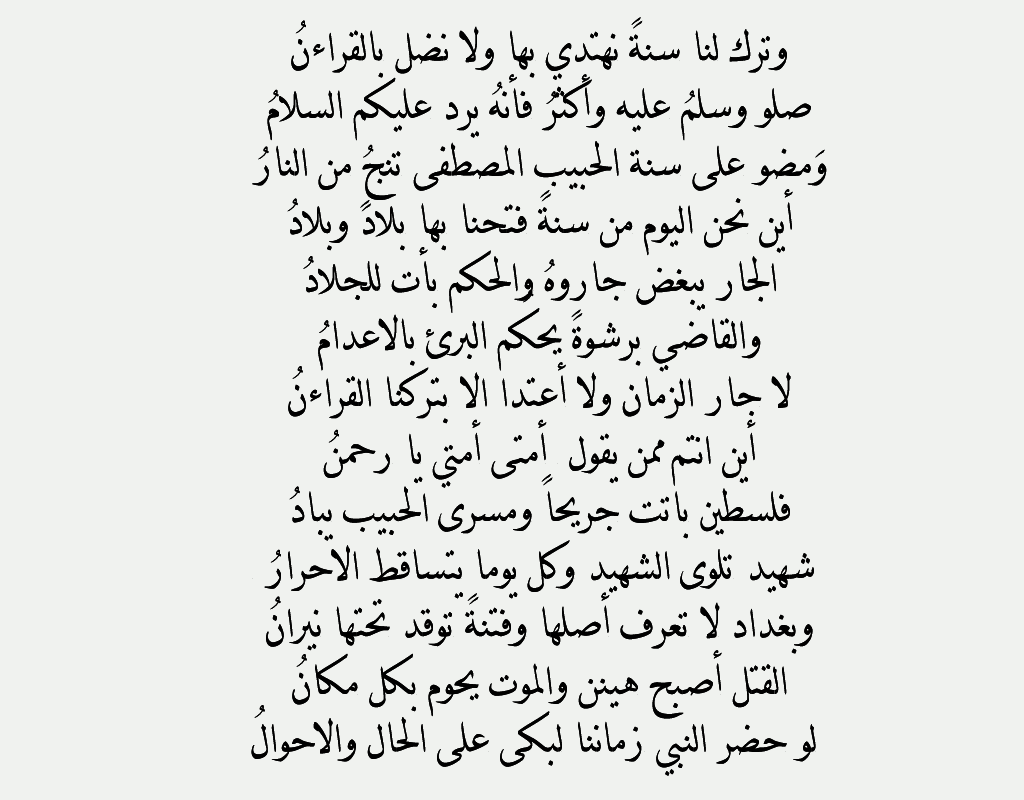 وترك لنا سنةً نهتدي بها ولا نضل بالقراءنُ
صلو وسلمُ عليه وأكثرُ فأنهُ يرد عليكم السلامُ
وَمضو على سنة الحبيب المصطفى تنجُ من النارُ
أين نحن اليوم من سنةً فتحنا بها بلادً وبلادُ
الجار يبغض جاروهُ والحكم بأت للجلادُ
والقاضي برشوةً يحكُم البرئ بالاعدامُ
لا جار الزمان ولا أعتدا الا بتركنا القراءنُ
أين انتم ممن يقول أمتى أمتي يا رحمنُ
فلسطين باتت جريحاً ومسرى الحبيب يبادُ
شهيد تلوى الشهيد وكل يوما يتساقط الاحرارُ
وبغداد لا تعرف أصلها وفتنةً توقد تحتها نيرانُ
القتل أصبح هينن والموت يحوم بكل مكانُ
لو حضر النبي زماننا لبكى على الحال والاحوالُ